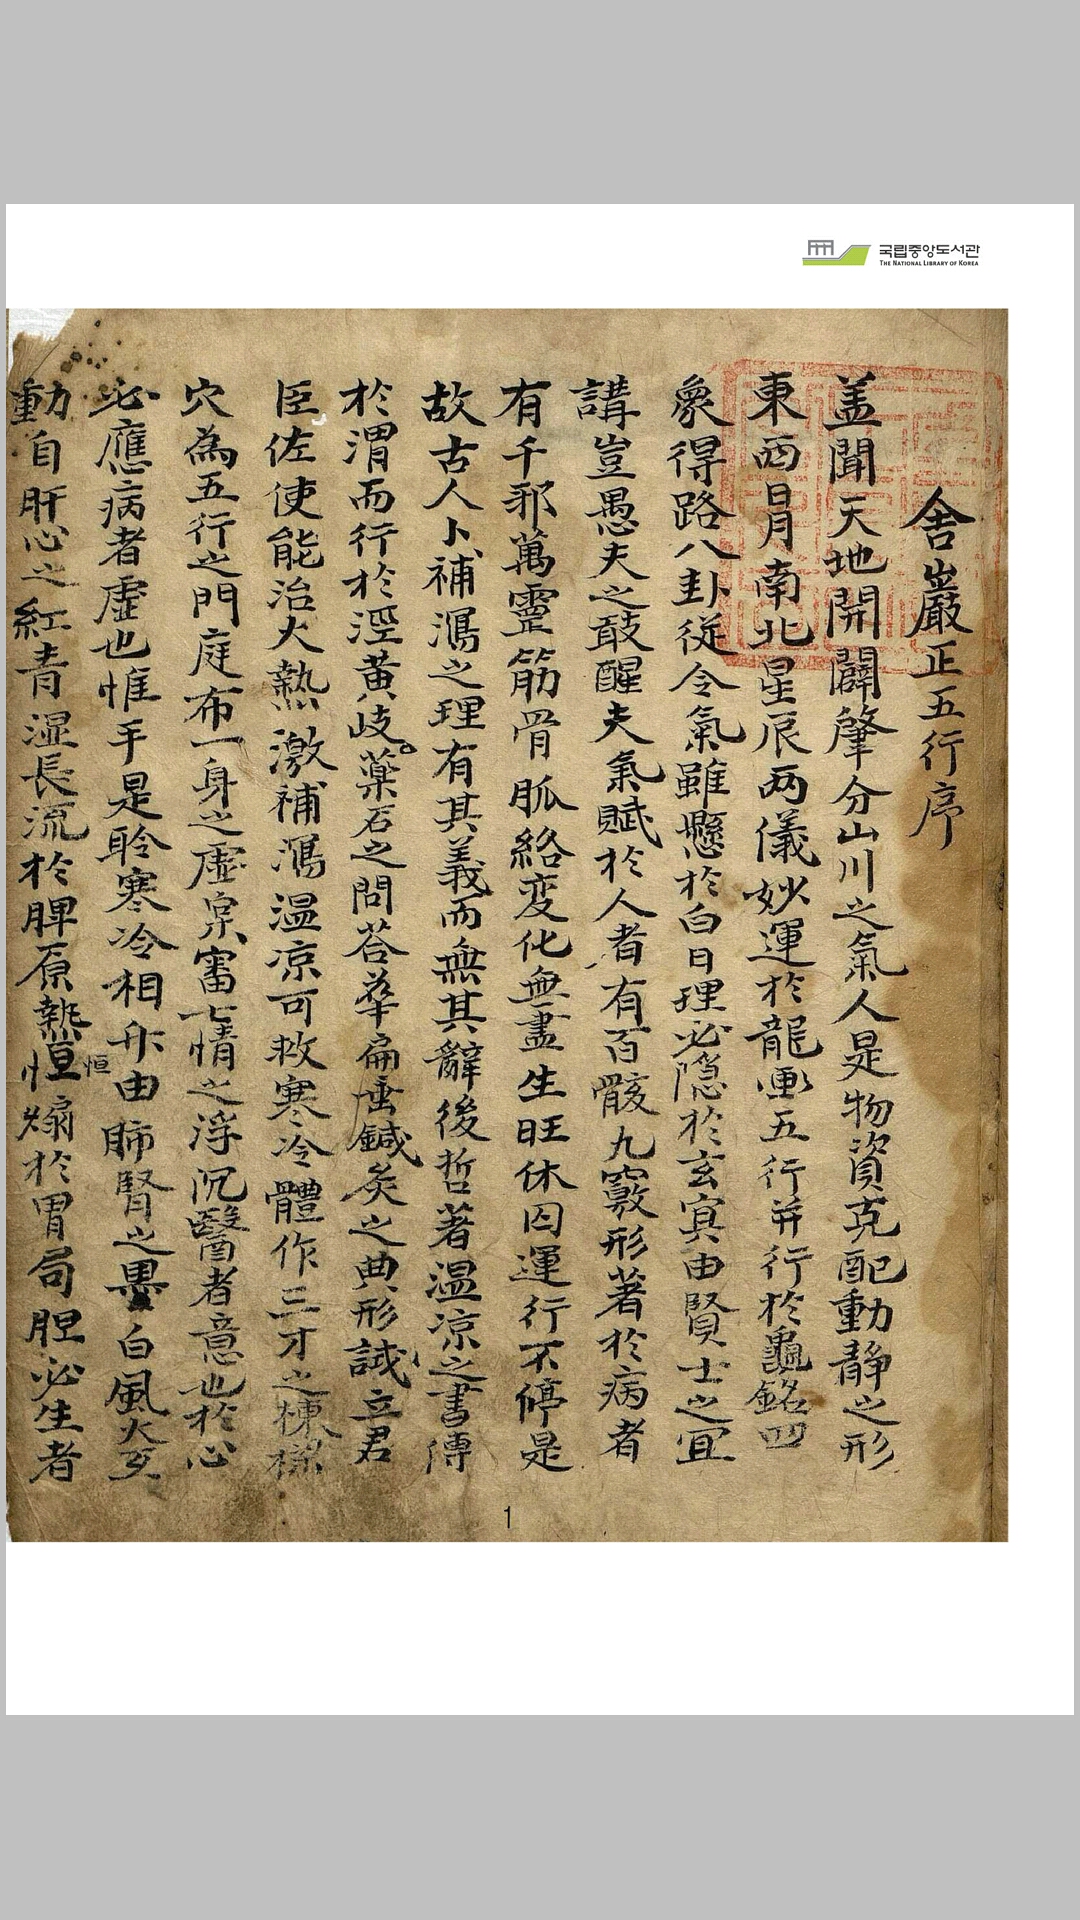 국립중앙도서관
THE NATIONAL LIBRARY OF KOREA
舍巖正五行序
盖聞天地開闢肇分山川之氣人是物資克配動靜之形
東西日月南北星辰两儀妙運於龍畫五行并行於龜銘四
象得路八卦從令氣雖懸於白日理必隠於玄冥由賢士之宜
講豈愚夫之敲醒夫氣賦於人者有百骸九竅形著於病者
有千邪萬靈筋骨脈絡変化無盡生旺休囚運行不停是
故古人卜補瀉之理有其義而無其辭後哲著温凉之書傳
於渭而行於涇黄岐藥石之問荅華扁垂鍼灸之典形誠立君
臣佐使能治火熱激補瀉温凉可救寒冷體作三才之棟樑
穴為五行之門庭布一身之虛宲審七情之浮沉醫者意也於心
必應病者虛也惟手是聆寒冷相升由肺腎之黑白風火交
動自肝心之紅青湿長流於脾原熱恒熇於胃局胆必生者
恒
1